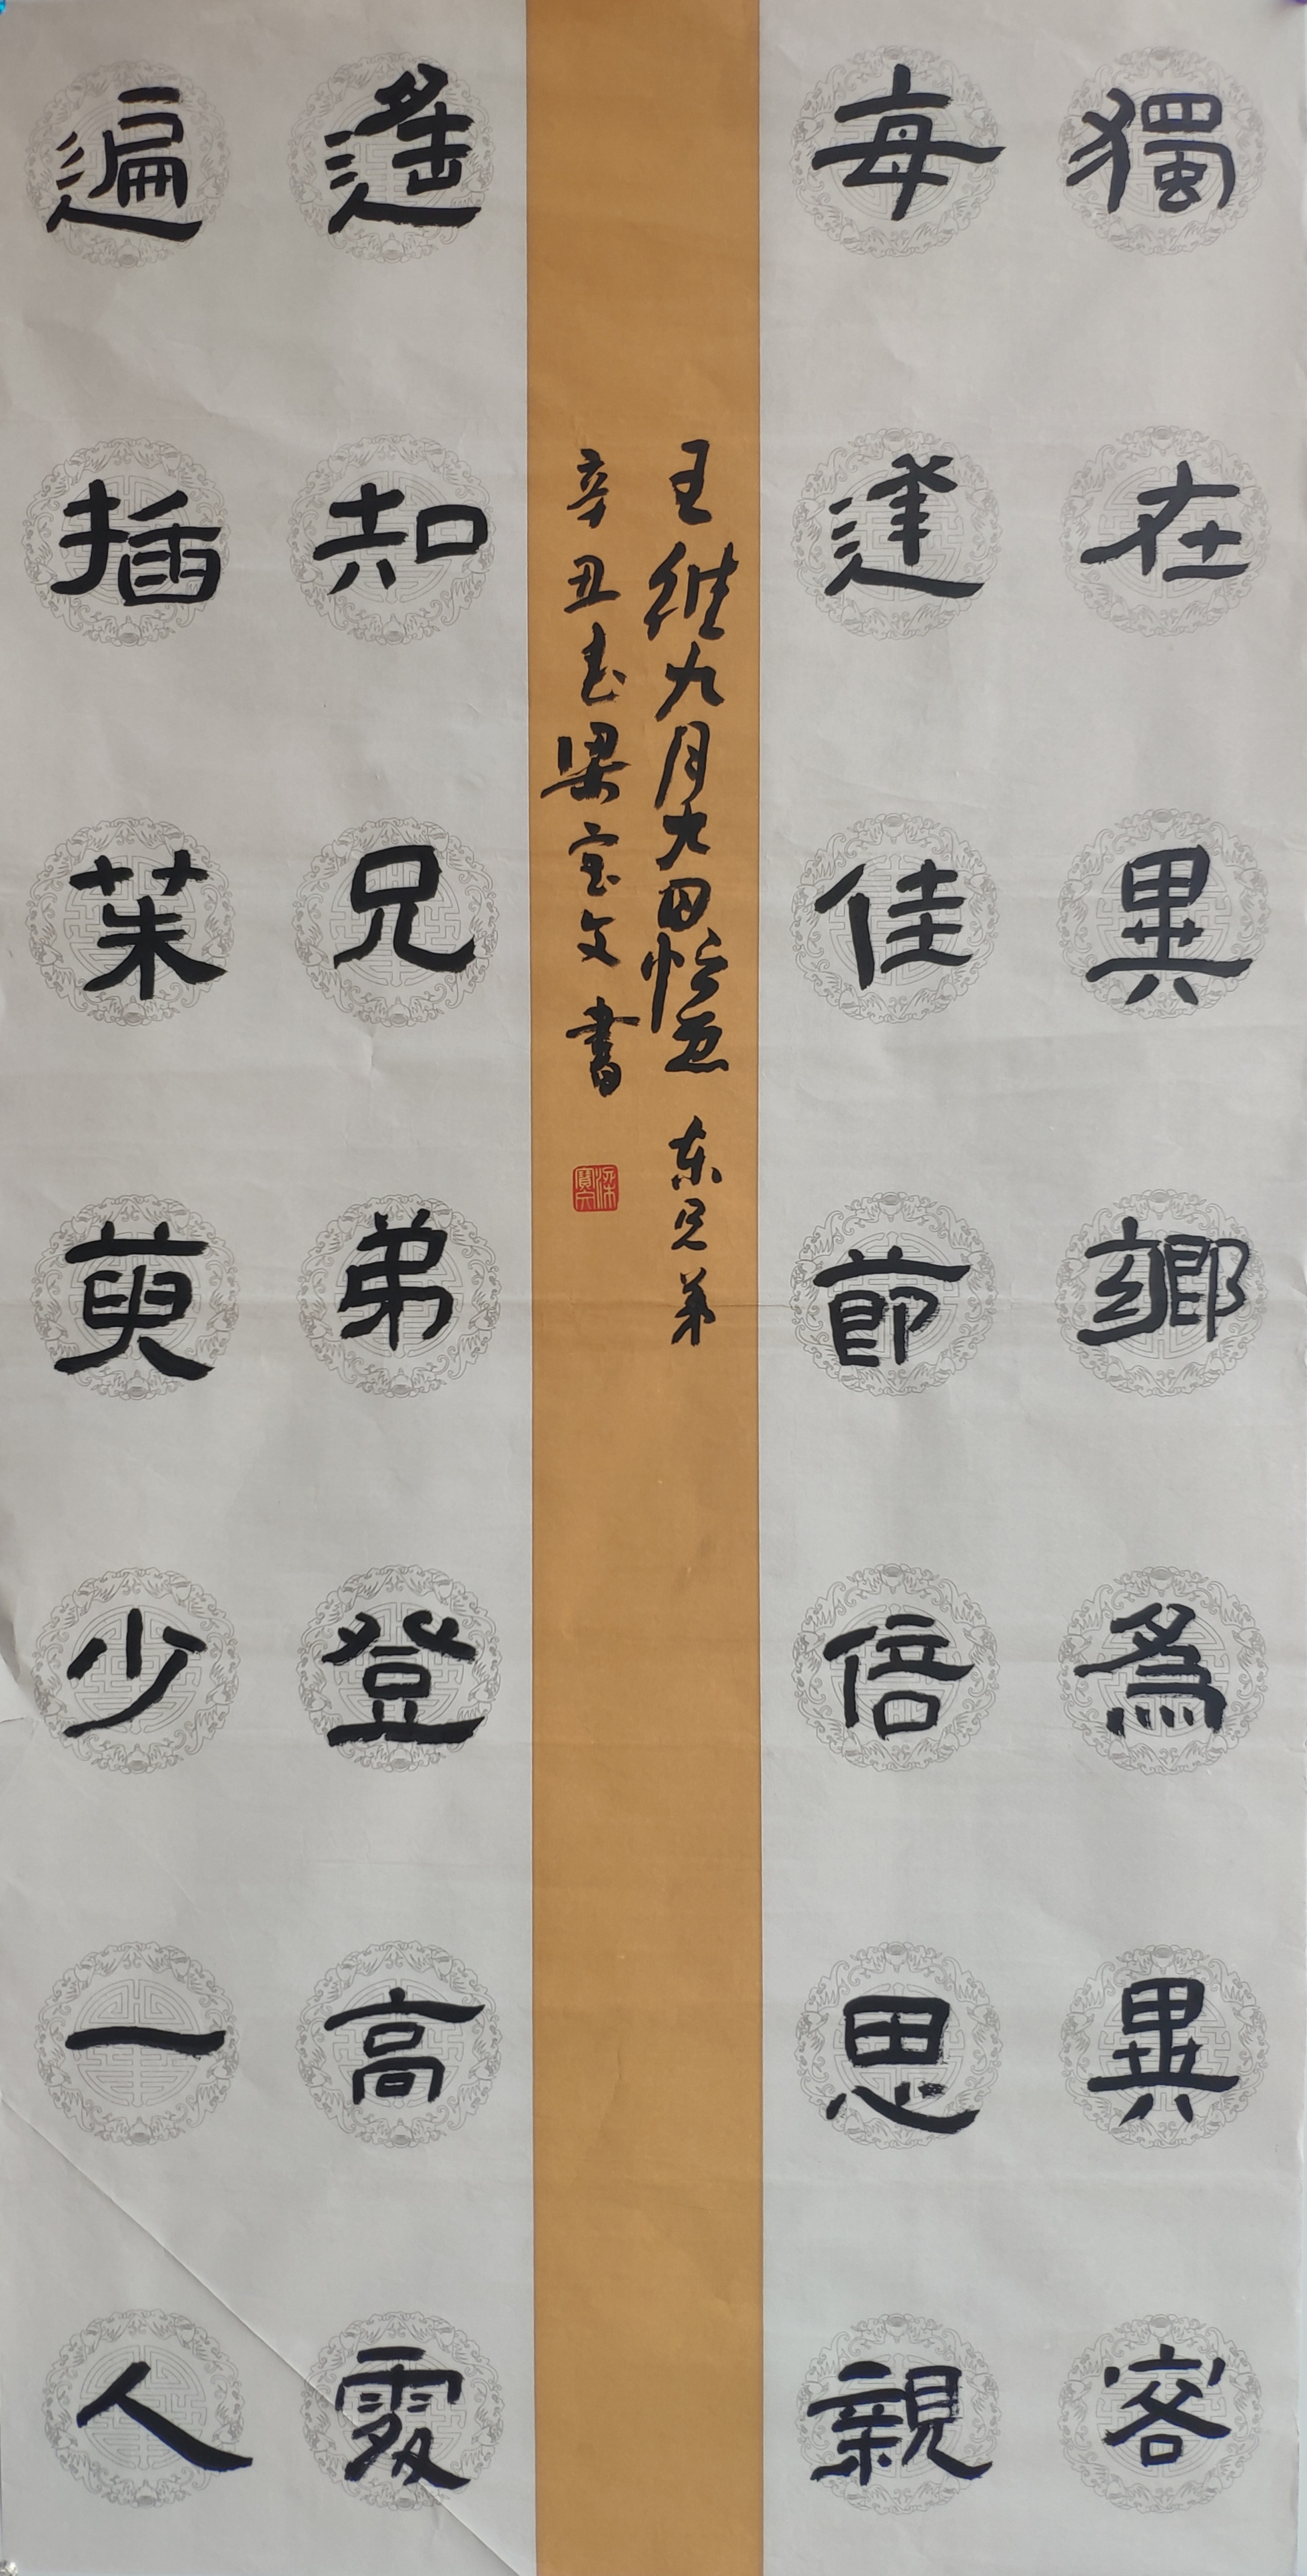 獨在異鄉爲異客
每逢佳節倍思親
王維九月九日憶东兄弟
辛丑春梁宝文書
梁寶文
遙知兄弟登高處
遍插茱萸少一人